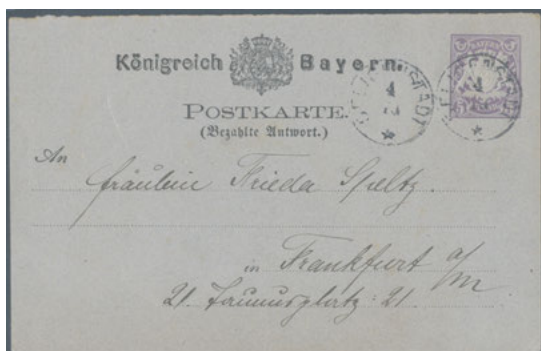 Königreich Bayern.
POSTKARTE.
(Bezahlte Antwort.)
An
Fräulein Frieda Speltz.
in Frankfurt a/m
21. Taunusplatz: 21.